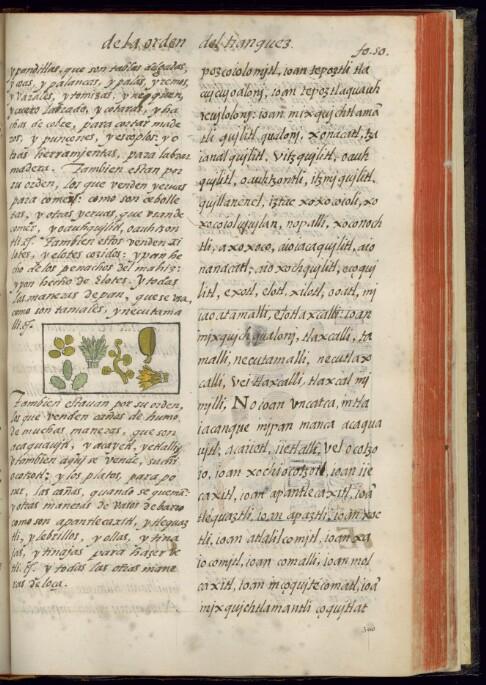 de la orden del tianquez.
fo. 50.
y pandillas, que son tablas delgadas,
y coas, y palancas, y palas, y remos,
y varales, y tomizas, y nequen,
y cuero labrado, y cotaras, y ha
chas de cobre, para cortar made
ros, y punçones, y escoplos: y o
tras herramientas, para labrar
madera. Tambien estan por
su orden, los que venden yeruas
para comer: como son cebolle
tas, y otras yeruas, que vsan de
comer, y oauhquilitl, oauhtzon
tli. &. Tambien estos venden xi
lotes, y elotes cozidos: y pan he
cho de los penachos del mahiz:
y pan hecho de elotes, y todas
las maneras de pan, que se vsa,
como son tamales, y necutama
lli. &.
Tambien estauan por su orden,
los que venden cañas de humo,
de muchas maneras, que son
acaquauhitl, y acayetl, yetlalli:
y tambien aqui se vende, suchi
ocotzotl: y los platos, para po
ner, las cañas, quando se quemã:
y otras maneras de vasos de barro
como son apantlecaxitl, y tlequaz
tli, y lebrillos, y ollas, y tina
jas, y tinajas para hazer oc
tli. &. y todas las otras mane
ras de loça.
pozcotolonjtl, ioan tepoztli tla
cujcujoalonj, ioan tepoztlaquauh
tli quilitl qualonj, xonacatl, tza
ianal quilitl, vitzquilitl, oauh
quilitl, oauhtzontli, itzmjquilitl,
quillanenel, iztac xoxocoioli, xo
xocoiolujujlan, nopalli, xoconoch
tli, axoxoco, aioiacaquilitl, aio
nanacatl, aioxochquilitl, ecoqui
litl, exotl, elotl, xilotl, ooatl, mj
iaoatamalli, elotlaxcalli: ioan
mjxqujch qualonj, tlaxcalli, ta
malli, necutamalli, necutlax
calli, veitlaxcalli, tlaxcal mj
mjlli. No ioan vncatca, intla
iacanque mjpan manca acaqua
ujtl, acaietl, iietlalli, vel ocotzo
io, ioan xochiocotzotl, ioan iie
caxitl, ioan apantlecaxitl, ioã
tlequaztli, ioan apaztli, ioan xoc
tli, ioan atlalilcomjtl, ioan xa
iocomjtl, ioan comalli, ioan mol
caxitl, ioan incoquitecomatl, ioã
mjxqujchtlamantli çoquitlat